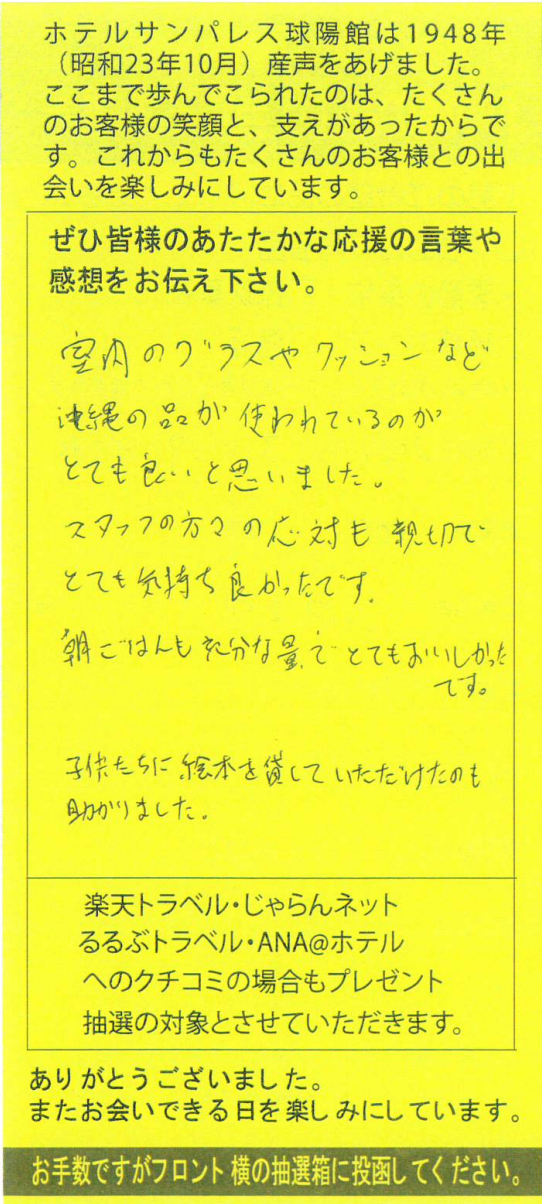 ホテルサンパレス球陽館は1948年
（昭和23年10月）産声をあげました。
ここまで歩んでこられたのは、たくさん
のお客様の笑顔と、支えがあったからで
す。これからもたくさんのお客様との出
会いを楽しみにしています。
ぜひ皆様のあたたかな応援の言葉や
感想をお伝え下さい。
室内のグラスやクッションなど
沖縄の品が使われているのが
とても良いと思いました。
スタッフの方々の応対も親切で
とても気持ち良かったです。
朝ごはんも充分な量でとてもおいしかった
です。
子供たちに絵本を貸していただけたのも
助かりました。
楽天トラベル・じゃらんネット
るるぶトラベル・ANA@ホテル
へのクチコミの場合もプレゼント
抽選の対象とさせていただきます。
ありがとうございました。
またお会いできる日を楽しみにしています。
お手数ですがフロント横の抽選箱に投函してください。